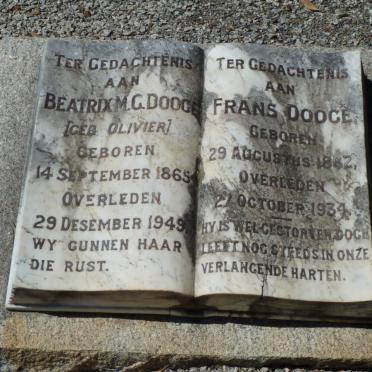 TER GEDACHTENIS
AAN
BEATRIX M.C. DOOGE
[GEB OLIVIER]
GEBOREN
14 SEPTEMBER 1865
OVERLEDEN
29 DESEMBER 1949
WY GUNNEN HAAR
DIE RUST.
TER GEDACHTENIS
AAN
FRANS DOOGE
GEBOREN
29 AUGUSTUS 1862,
OVERLEDEN
27 OCTOBER 1934.
HY IS WEL GESTORVEN DOCH
LEEFT NOG STEEDS IN ONZE
VERLANGENDE HARTEN.